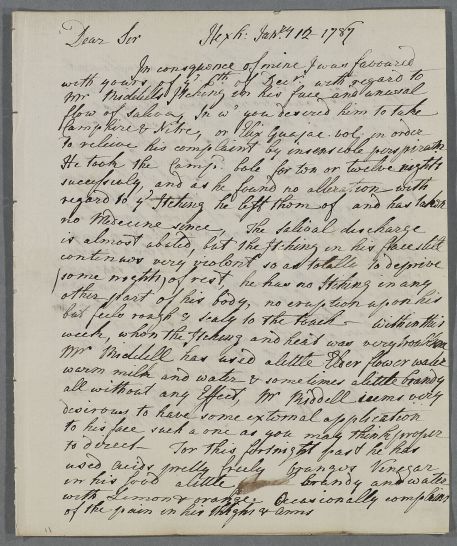 Dear Sir Hexh: Jany 12 1787
In consequence of mine I was favoured
with yours of ye 6th of Decr with regard to
Mr Riddells Itching in his face and unusal
flow of Saliva, In wh you desired him to take
Camphire & Nitre, or Elix Guajac. vol. in order
to relieve his complaint by insensible perspiration
He took the Camp. bole for ten or twelve nights
successively, and as he found no alteration with
regard to ye Itching he left them of and has taken
no Medecine since, The Salival discharge
is almost abated, but the Itching in his face still
continues very violent so as totally to deprive
some nights of rest, he has no Itching in any
other part of his body, no eruption upon his
but feels rough & scaly to the touch — within this
week, when the Itching and heat was very
Mr Riddell has used a little Elder flower water
warm milk and water & sometimes a little brandy
all without any Effect, Mr Riddell seems very
desirous to have some external application
to his face such a one as you may think proper
to derect — For this fortnight past he has
used acids pretty freely Vinegar
in his food a little brandy and water
with Lemon & orange. Ocasionally complains
of the pain in his thighs & arms